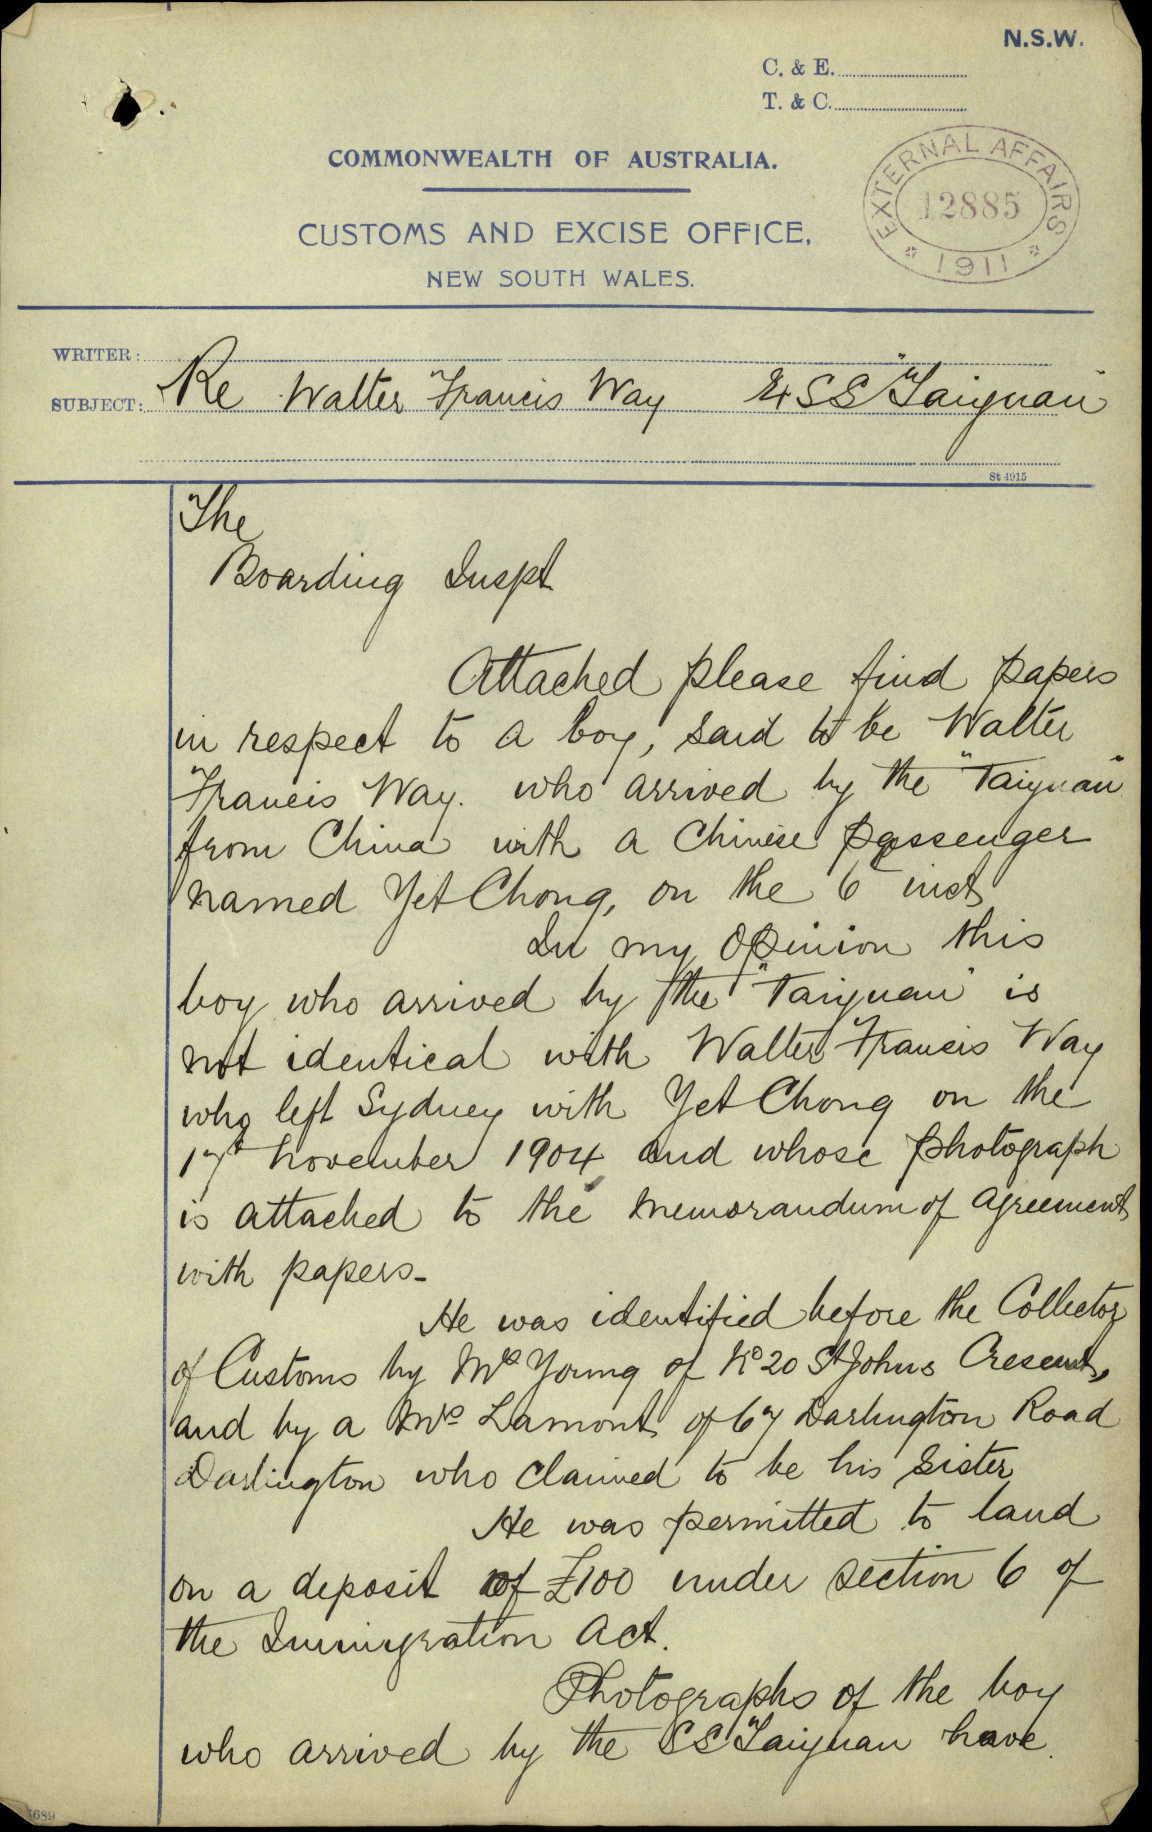 N.S.W.
C. & E.
T. & C.
COMMONWEALTH OF AUSTRALIA.
CUSTOMS AND EXCISE OFFICE,
NEW SOUTH WALES.
EXTERNAL AFFAIRS
12885
1911
WRITER:
SUBJECT: Re Walter Francis Way Ex SS "Taiyuan"
St 4915
The
Boarding Inspt
Attached please find papers
in respect to a boy, said to be Walter
Francis Way. who arrived by the "Taiyuan"
from China with a Chinese passenger
named Yet Chong, on the 6th inst
In my opinion this
boy who arrived by the "Taiyuan" is
not identical with Walter Francis Way
who left Sydney with Yet Chong on the
17th November 1904 and whose photograph
is attached to the memorandum of agreement
with papers-
He was identified before the Collector
of Customs by Mrs Young of No 20 St Johns Cresent,
and by a Mrs Lamont of 67 Darlington Road
Darlington who claimed to be his sister
He was permitted to land
on a deposit of £100 under section 6 of
the Immigration Act.
Photographs of the boy
who arrived by the SS "Taiyuan have